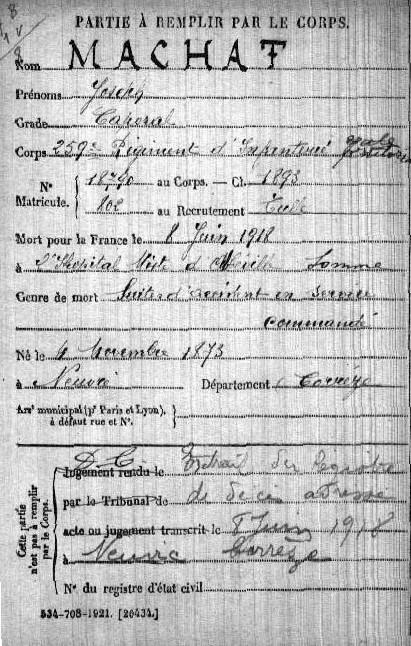 PARTIE À REMPLIR PAR LE CORPS.
Nom MACHAT
Prénoms Joseph
Grade Caporal
Corps 259e Régiment d'Infanterie
Nº Matricule. 18740 au Corps. — Cl. 1893
802 au Recrutement Tulle
Mort pour la France le 8 Juin 1918
à l'Hopital Mixte d'Abbeville Somme
Genre de mort Suites d'accident en service
commandé
Né le 4 Novembre 1873
à Neuvic Département Corrèze
Arrt municipal (pr Paris et Lyon),
à défaut rue et Nº.
Cette partie n'est pas à remplir par le Corps.
D.C.
Jugement rendu le Extrait du Registre
par le Tribunal de de décès adressé
acte ou jugement transcrit le 8 Juin 1918
à Neuvic Corrèze
Nº du registre d'état civil
534-708-1921. [26434.]